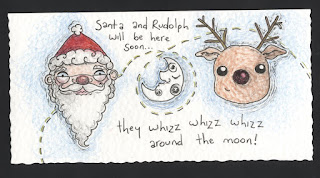 Santa and Rudolph
will be here
soon...
they whizz whizz whizz
around the moon!